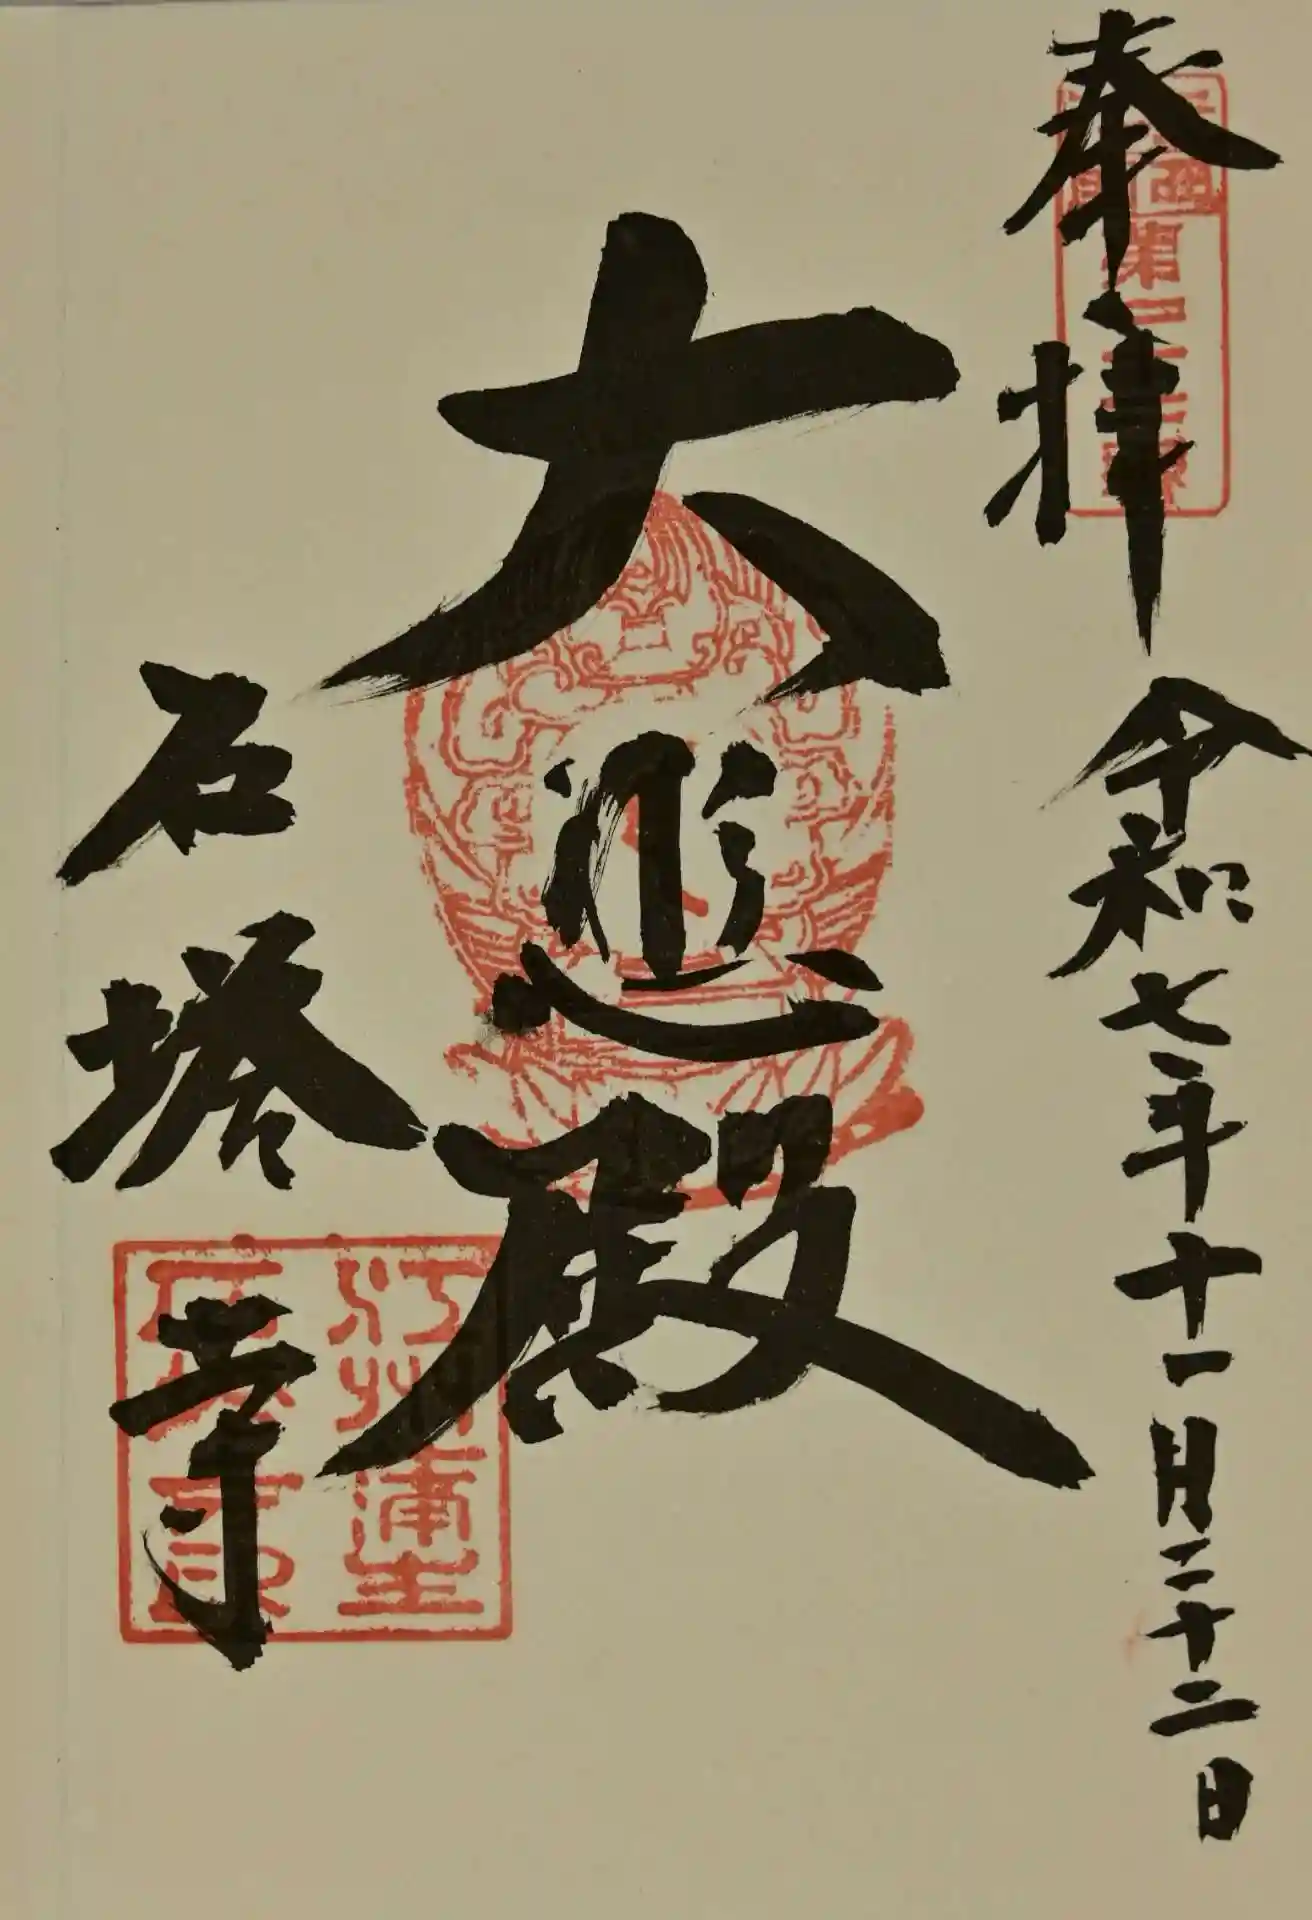 奉拝 令和七年十一月二十二日
大悲殿
石塔寺
江州蒲生
石塔寺印